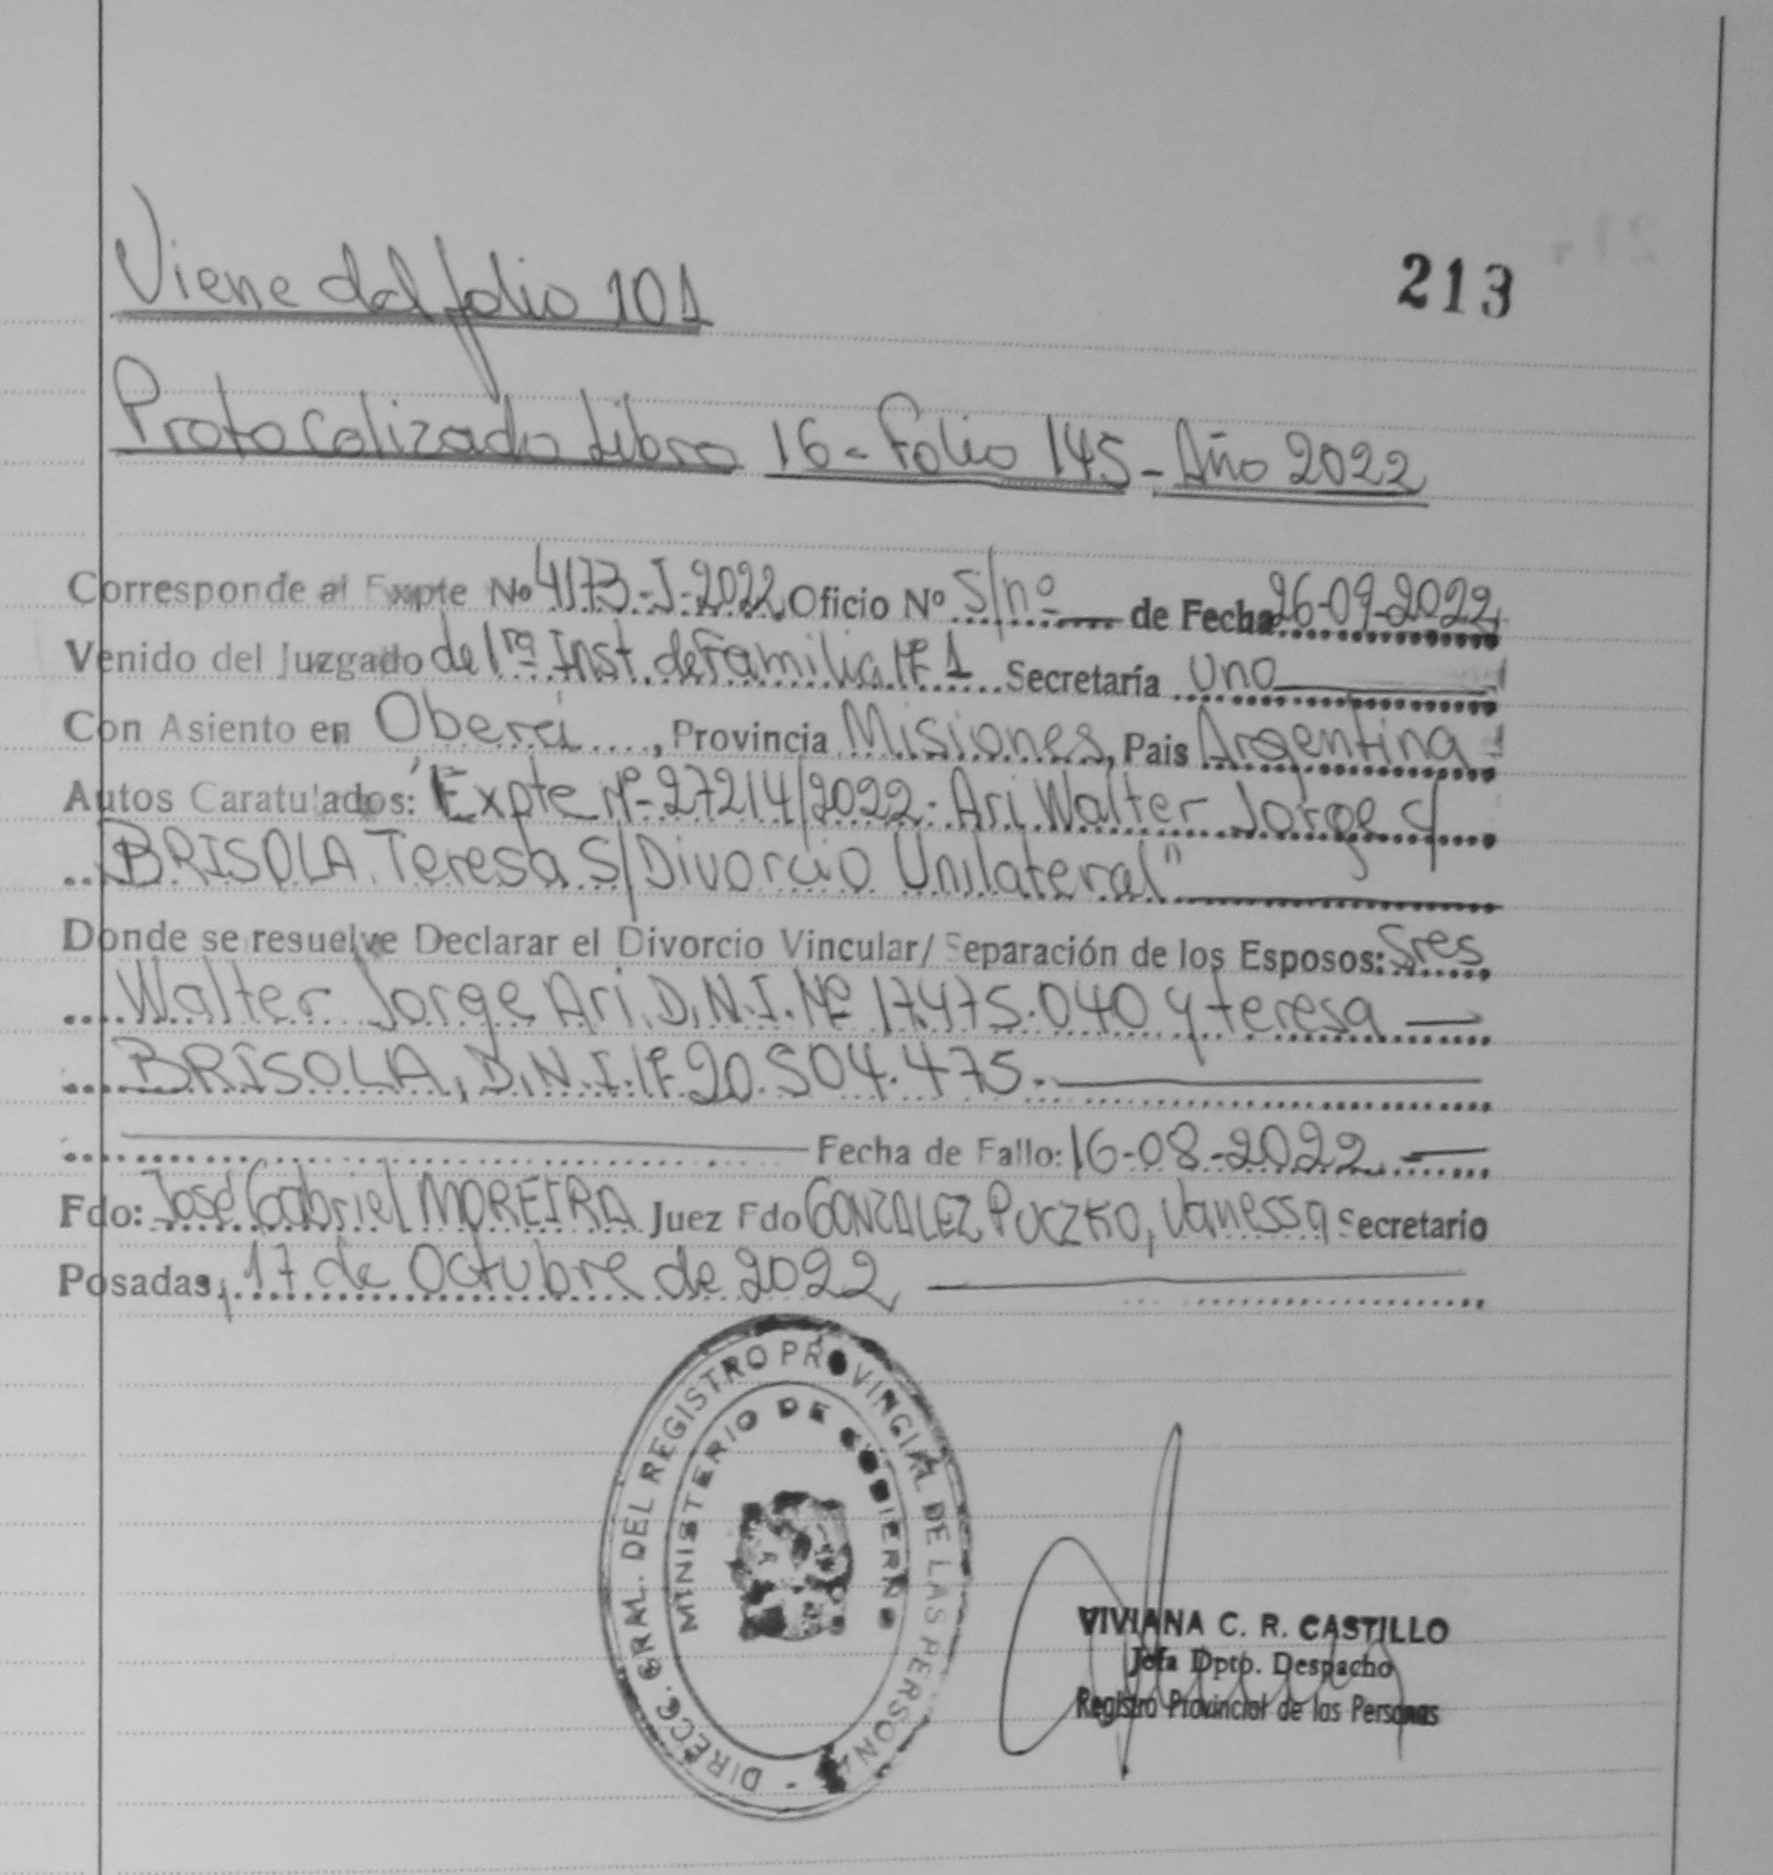 Viene del folio 101
213
Protocolizado Libro 16 - Folio 145 - Año 2022
Corresponde al Expte No 4173-J-2022 Oficio Nº S/nº de Fecha 26-09-2022
Venido del Juzgado de 1ra Inst. de Familia Nº 1 Secretaría Uno
Con Asiento en Oberá, Provincia Misiones, Pais Argentina
Autos Caratulados: "Expte Nº 27214/2022. Ari Walter Jorge c/
BRISOLA Teresa S/Divorcio Unilateral"
Donde se resuelve Declarar el Divorcio Vincular/ Separación de los Esposos: Sres
Walter Jorge Ari, D.N.I. Nº 17.475.040 y teresa
BRISOLA, D.N.I. Nº 20.504.475.
Fecha de Fallo: 16-08-2022
Fdo: José Gabriel MOREIRA Juez Fdo GONZALEZ PUCZKO, Vanessa Secretario
Posadas, 17 de Octubre de 2022
DIRECC. GRAL. DEL REGISTRO PROVINCIAL DE LAS PERSONAS
MINISTERIO DE GOBIERNO
VIVIANA C. R. CASTILLO
Jefa Dpto. Despacho
Registro Provincial de las Personas